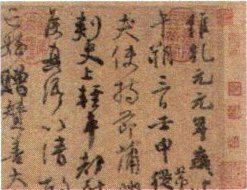 維乾元元年歲
午朔三日壬申從
夫使持節蒲
刺史上輕車都尉
侯真卿以清
亡姪贈贊善大